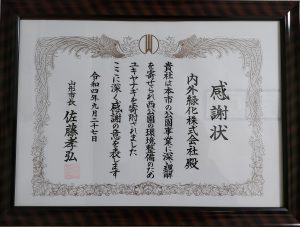 感謝状
内外緑化株式会社殿
貴社は本市の公園事業に深い理解
を寄せられ西公園の環境整備のため
ユキヤナギを寄附されました
ここに深く感謝の意を表します
令和四年九月二十七日
山形市長 佐藤孝弘